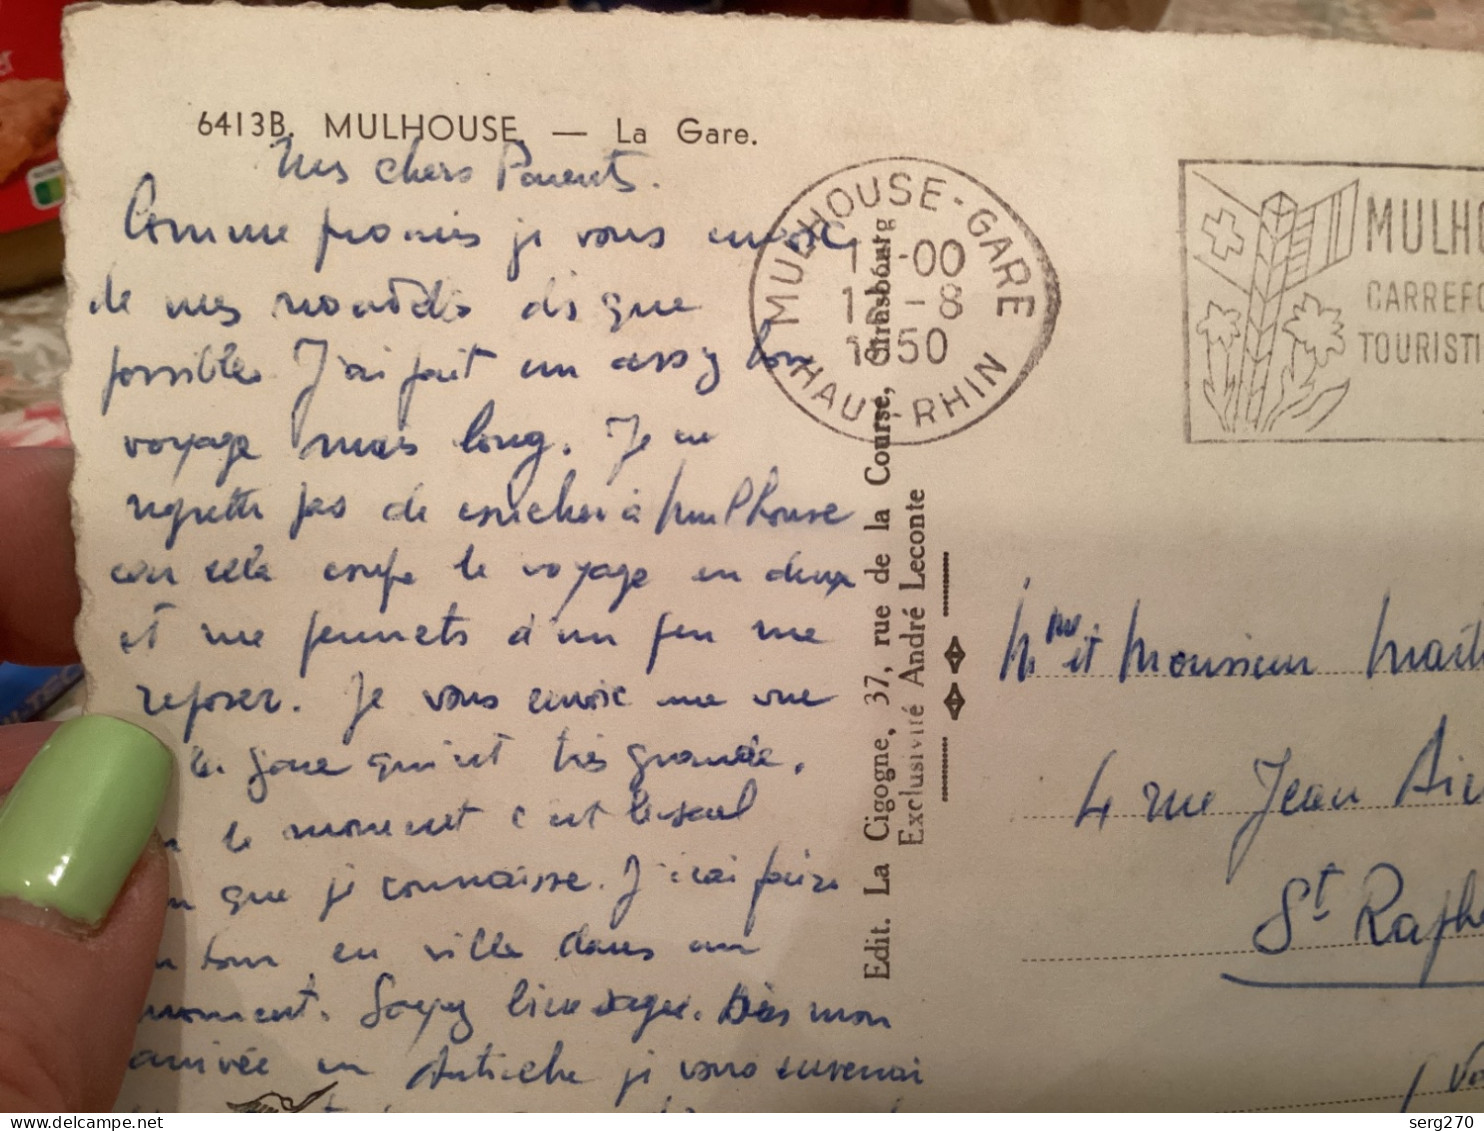 6413B. MULHOUSE. — La Gare.
Mes chers Parents.
Comme promis je vous envoie
de mes nouvelles dès que
possible. J'ai fait un assez bon
voyage mais long. Je ne
regrette pas de coucher à Mulhouse
car cela coupe le voyage en deux
et me permets d'un peu me
reposer. Je vous envoie une vue
la gare qui est très grande.
le moment c'est le seul
que je connaisse. J'irai faire
tour en ville dans un
moment. Soyez bien sages. Dès mon
arrivée en Autriche je vous enverrai
MULHOUSE-GARE
-00
-8
1 50
HAUT-RHIN
MULHO
CARREFO
TOURISTI
Edit. La Cigogne, 37, rue de la Course, Strasbourg
Exclusivité André Leconte
Mme et Monsieur
4 rue Jean
St Raph